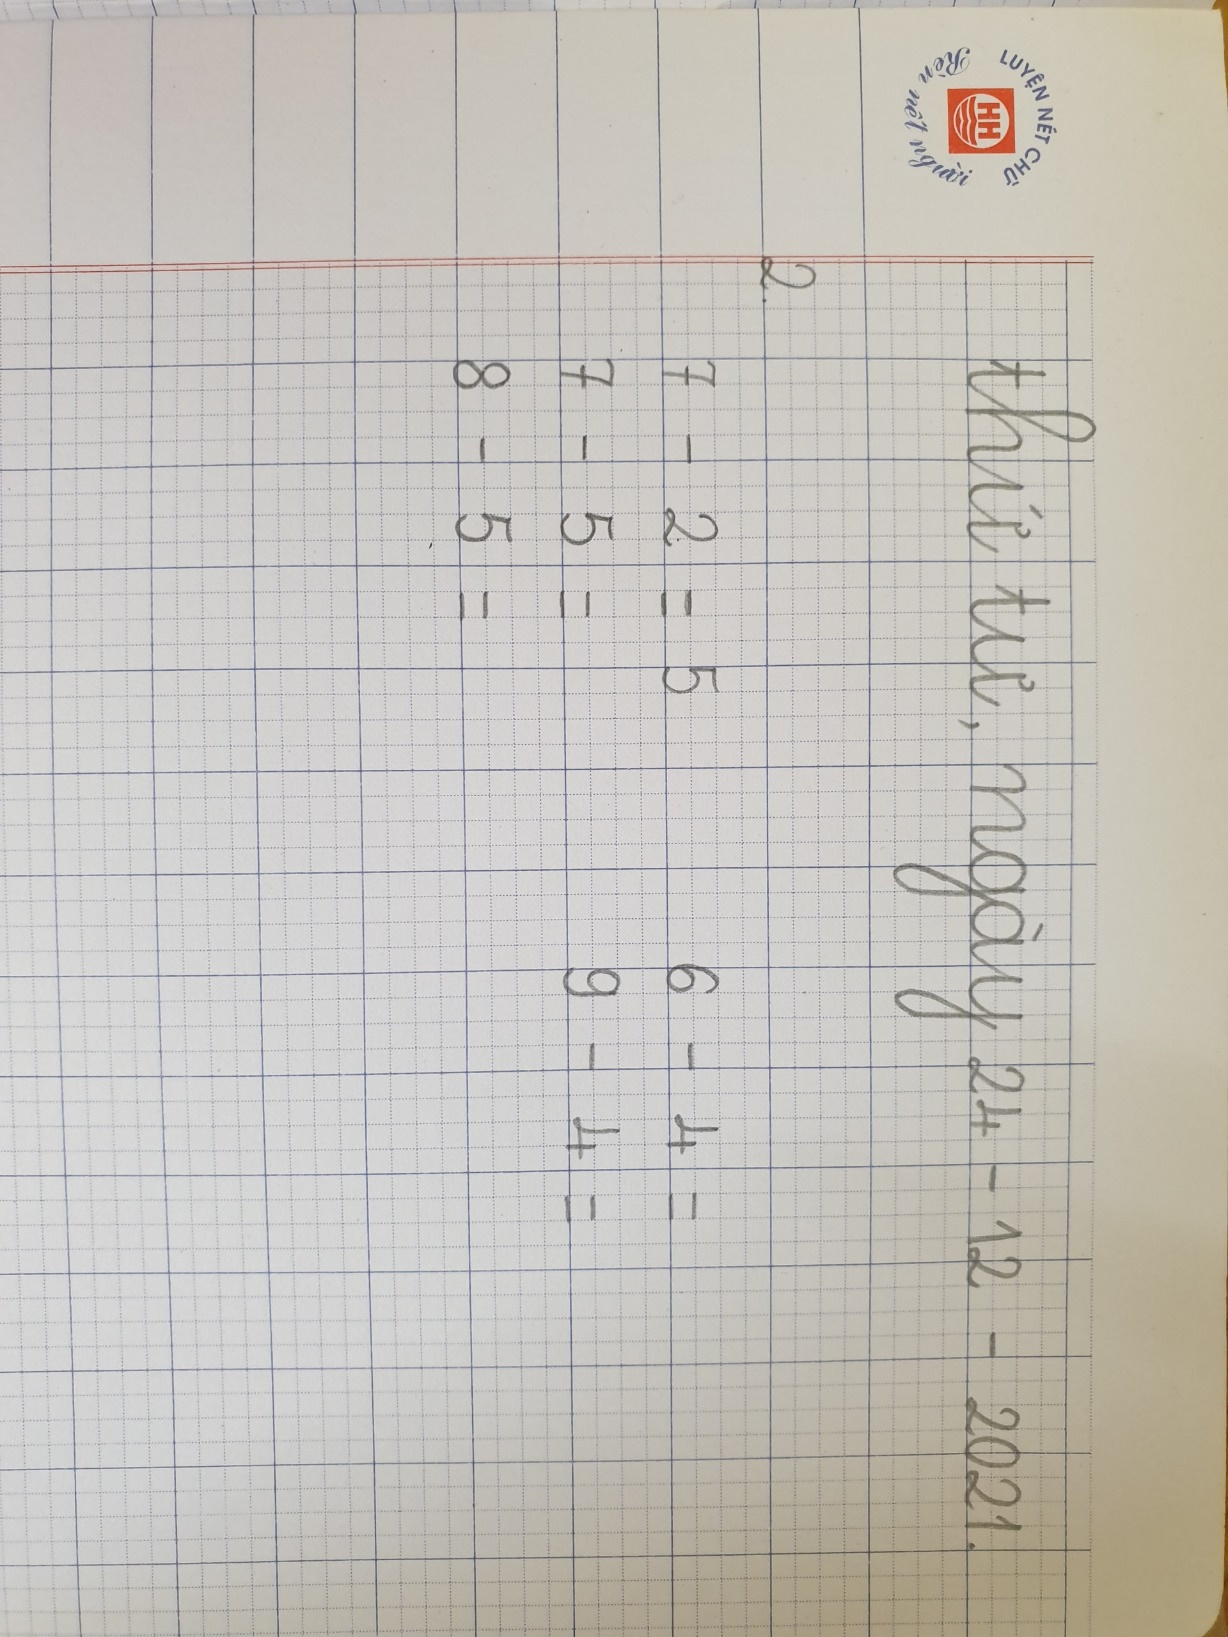 LUYỆN NÉT CHỮ
HH
Rèn nết người
thứ tư, ngày 24 - 12 - 2021.
2.
7 - 2 = 5 6 - 4 =
7 - 5 = 9 - 4 =
8 - 5 =